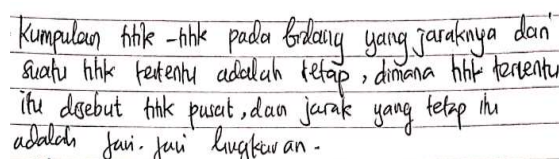 Kumpulan titik - titik pada bidang yang jaraknya dari
suatu titik tertentu adalah tetap, dimana titik tertentu
itu disebut titik pusat, dan jarak yang tetap itu
adalah jari-jari lingkaran.